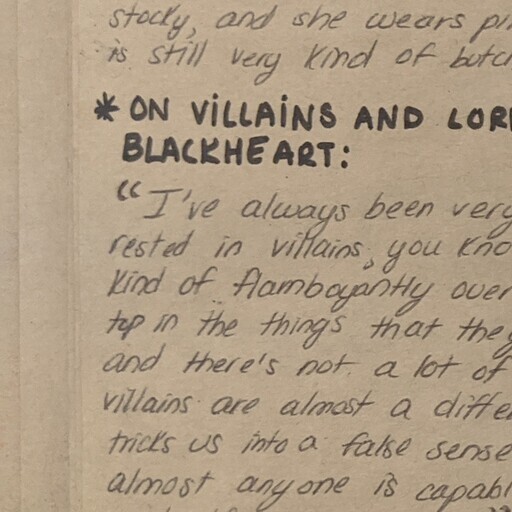 stocky, and she wears
is still very kind of butch
* ON VILLAINS AND LOR
BLACKHEART:
"I've always been very
rested in villains, you kno
kind of flamboyantly over
top in the things that they
and there's not a lot of
villains are almost a diffe
tricks us into a false sense
almost anyone is capabl